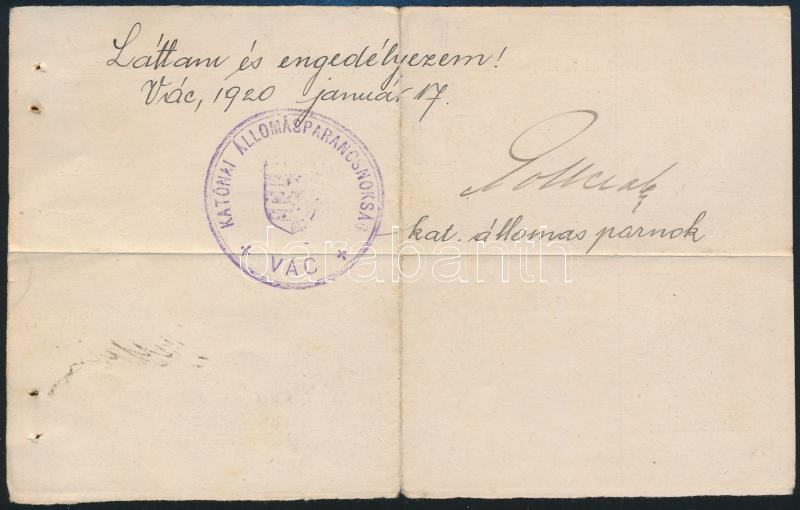 Láttam és engedélyezem!
Vác, 1920 január 17.
KATONAI ÁLLOMÁSPARANCSNOKSÁG
× VÁC ×
kat. állomas parnok
darabanth